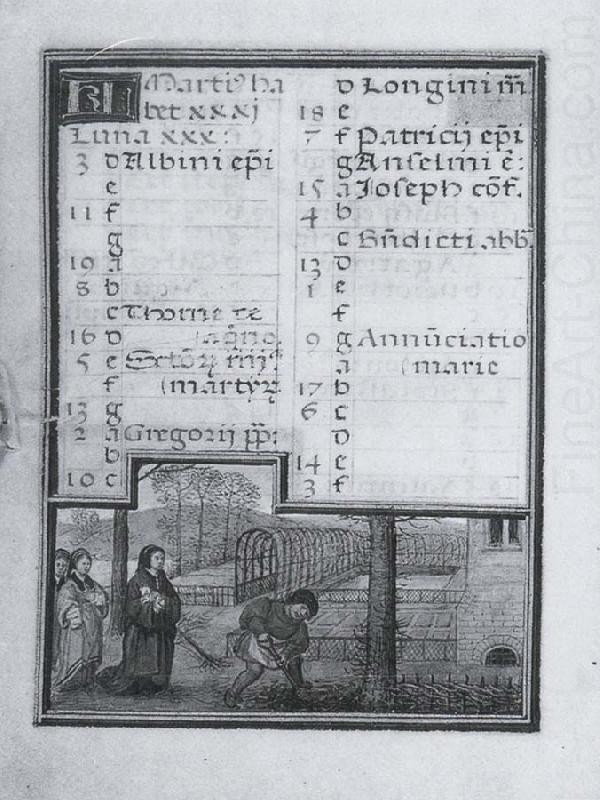 KL Martiꝰ ha
bet xxxj
Luna xxx:
3 d Albini ep̄i
e
11 f
g
19 a
8 b
c Thome de
aq̄no.
16 d
5 e Sctōꝝ
f martyꝝ
13 g
2 a Gregorii pp̄:
b
10 c
d Longini m̄
18 e
7 f Patricij ep̄i
g Anselmi ē:
15 a Joseph cōf.
4 b
c Bn̄dicti abb.
13 d
1 e
f
9 g Annūciatio
a marie
17 b
6 c
d
14 e
3 f
FineArt-China.com